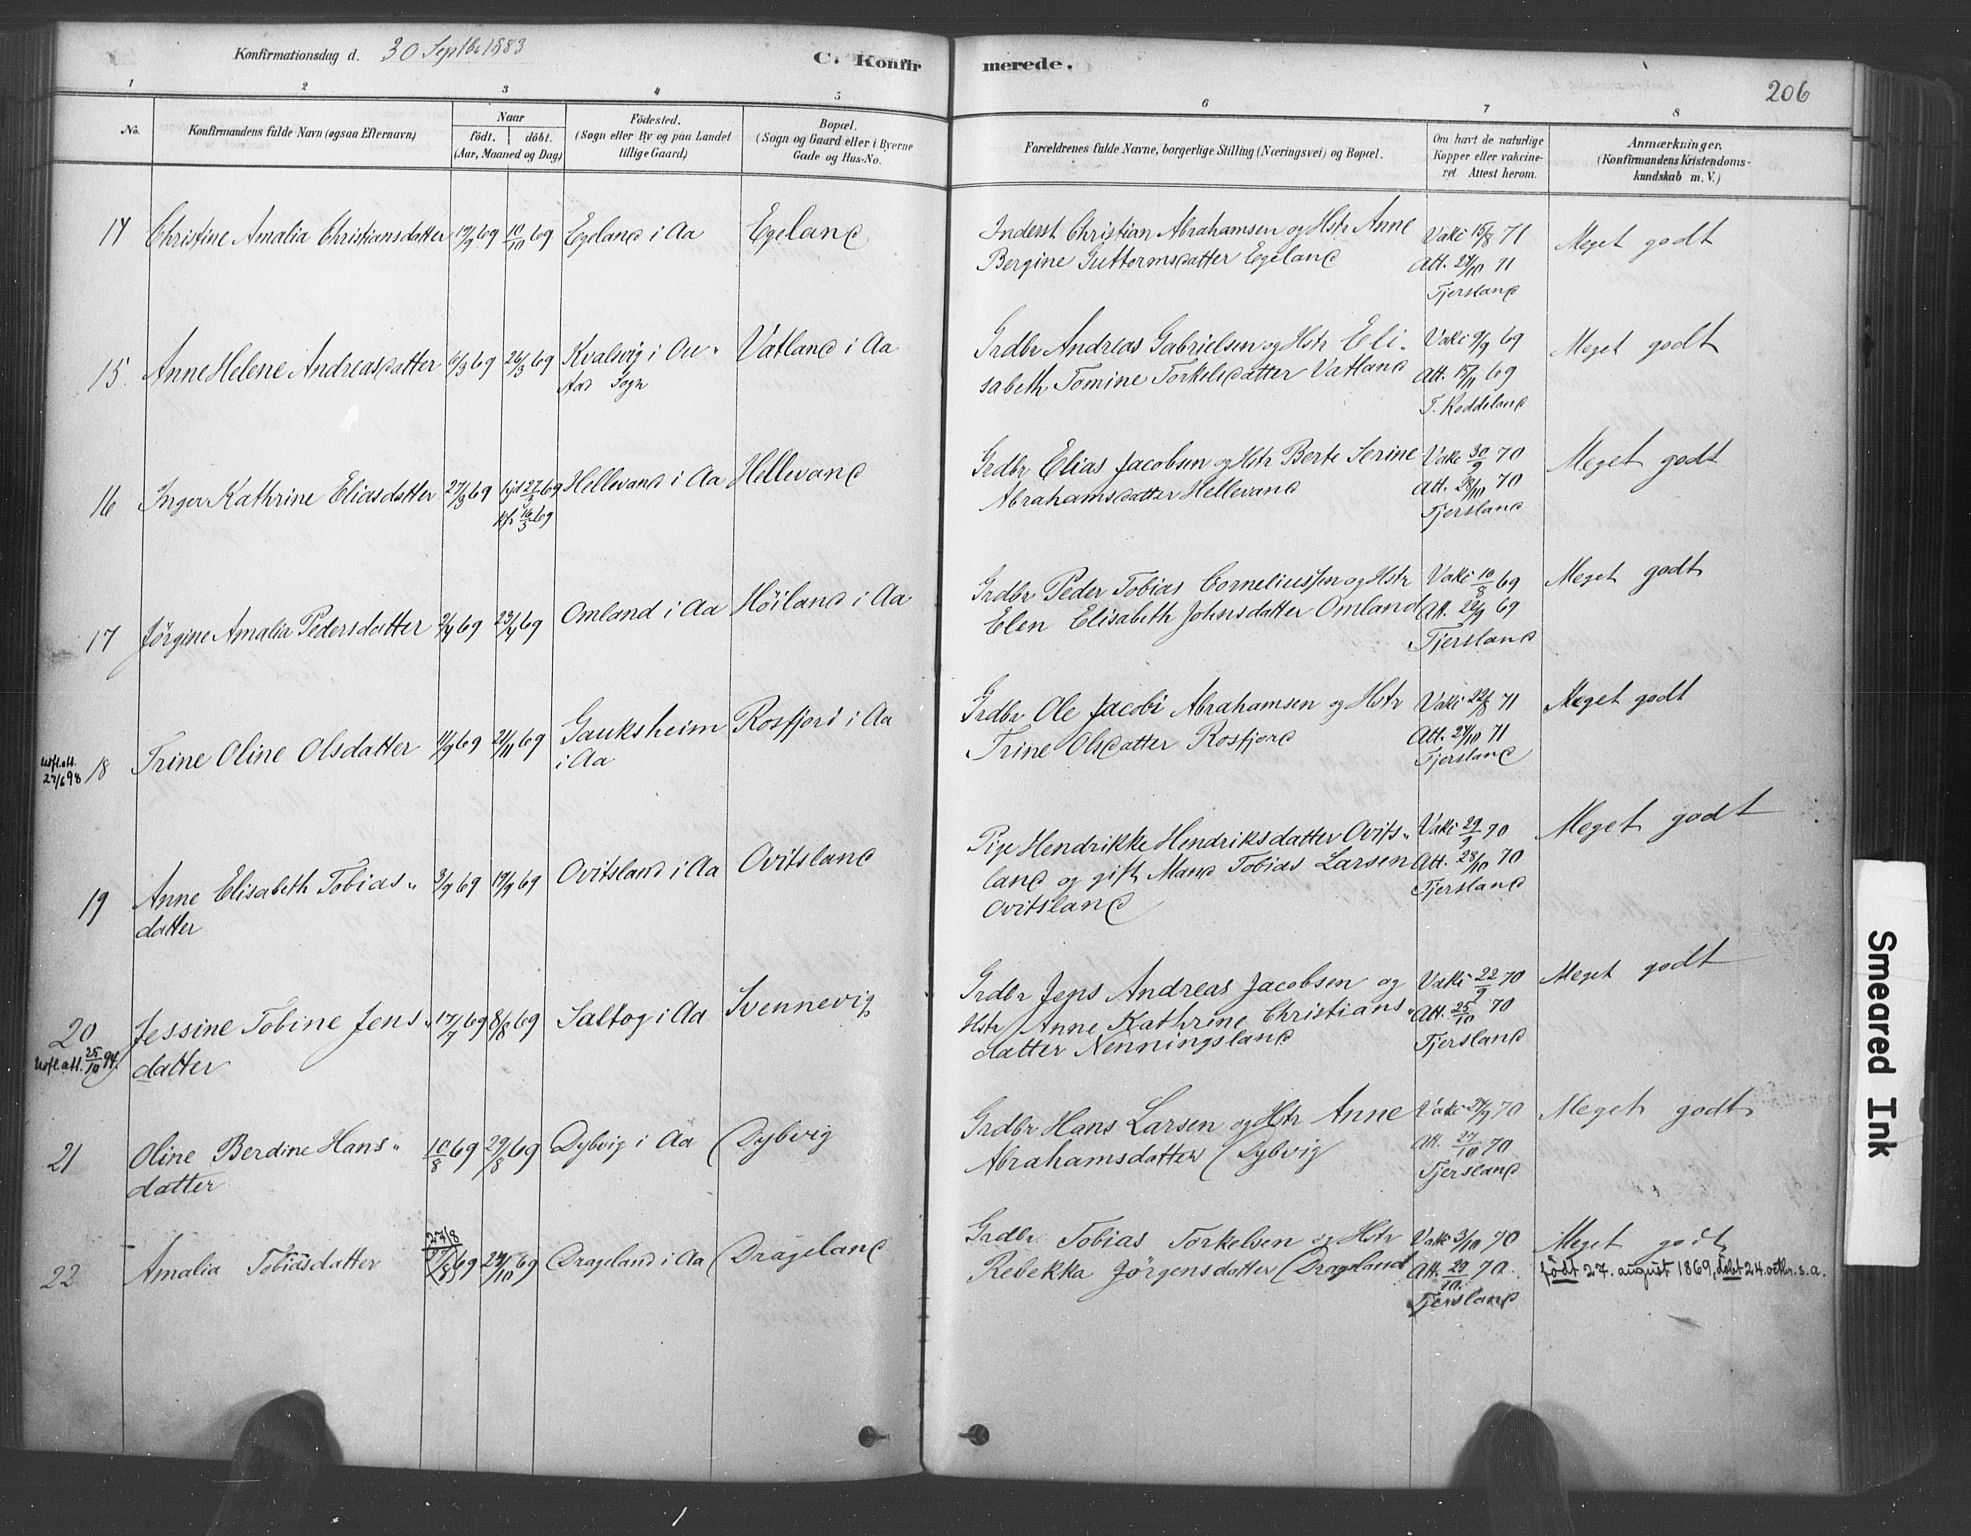 Konfirmationsdag d. 30 Septbr 1883
C. Konfir merede.
206
1 2 3 4 5 6 7 8
No.
Konfirmandens fulde Navn (ogsaa Efternavn)
Naar
födt. döbt.
(Aar, Maaned og Dag)
Födested.
(Sogn eller By og paa Landet
tillige Gaard)
Bopæl.
(Sogn og Gaard eller i Byerne
Gade og Hus-No.
Forældrenes fulde Navne, borgerlige Stilling (Næringsvei) og Bopæl.
Om havt de naturlige
Kopper eller vakcine-
ret Attest herom.
Anmærkninger.
(Konfirmandens Kristendoms-
kundskab m. V.)
14 Christine Amalia Christiansdatter 69 10/10 69 Egeland i Aa Egeland
Inderst Christian Abrahamsen og Hstr Anne
Bergine Guttormsdatter Egeland
Vakc 15/8 71
Att. 71
Tjersland
Meget godt
15. Anne Helene Andreasdatter 6/3 69 26/3 69 Kvalsvig i Au"
Aas Sogn
Vatland i Aa
Grdbr Andreas Gabrielsen og Hstr Eli-
sabeth Tomine Torkelsdatter Vatland
Vakc 9/9 69
Att. 15/11 69
T. Reddeland
Meget godt
16 Inger Kathrine Eliasdatter 27/3 69 hjd 27/3 69
69
Hellevand i Aa Hellevand
Grdbr Elias Jacobsen og Hstr Berte Serine
Abrahamsdatter Hellevand
Vakc 30/9 70
Att. 28/10 70
Tjersland
Meget godt
17 Jörgine Amalia Pedersdatter 2/4 69 23/4 69 Omland i Aa Höiland i Aa
Grdbr Peder Tobias Corneliussen og Hstr
Elen Elisabeth Johnsdatter Omland
Vakc 10/8 69
Att. 22/9 69
Tjersland
Meget godt
Udfl. att.
27/6 98
18 Trine Oline Olsdatter 11/9 69 21/11 69 Gauksheim
i Aa
Rosfjord i Aa
Grdbr Ole Jacob Abrahamsen og Hstr
Trine Olsdatter Rosfjord
Vakc 22/8 71
Att. 71
Tjersland
Meget godt
19 Anne Elisabeth Tobias"
datter
3/9 69 69 Ovitsland i Aa Ovitsland
Pige Hendrikke Hendriksdatter Ovits"
land og gift Mand Tobias Larsen
Ovitsland
Vakc 29/9 70
Att. 28/10 70
Tjersland
Meget godt
20 Jessine Tobine Jens"
datter
Udfl. att. 25/10 94.
17/7 69 8/8 69 Saltog i Aa Svennevig
Grdbr Jens Andreas Jacobsen og
Hstr Anne Kathrine Christians"
datter Nenningsland
Vakc 22/9 70
Att. 25/10 70
Tjersland
Meget godt
21 Oline Berdine Hans"
datter
10/8 69 29/8 69 Dybvig i Aa Dybvig
Grdbr Hans Larsen og Hstr Anne
Abrahamsdatter Dybvig
Vakc 70
Att. 27/10 70
Tjersland
Meget godt
22 Amalia Tobiasdatter 27/8
69 24/10 69 Drageland i Aa Drageland
Grdbr Tobias Torkelsen og Hstr
Rebekka Jörgensdatter Drageland
Vakc 3/10 70
Att. 29/10 70.
Tjersland
Meget godt
födt 27. august 1869, döbt 24. octbr. s. a.
Smeared Ink